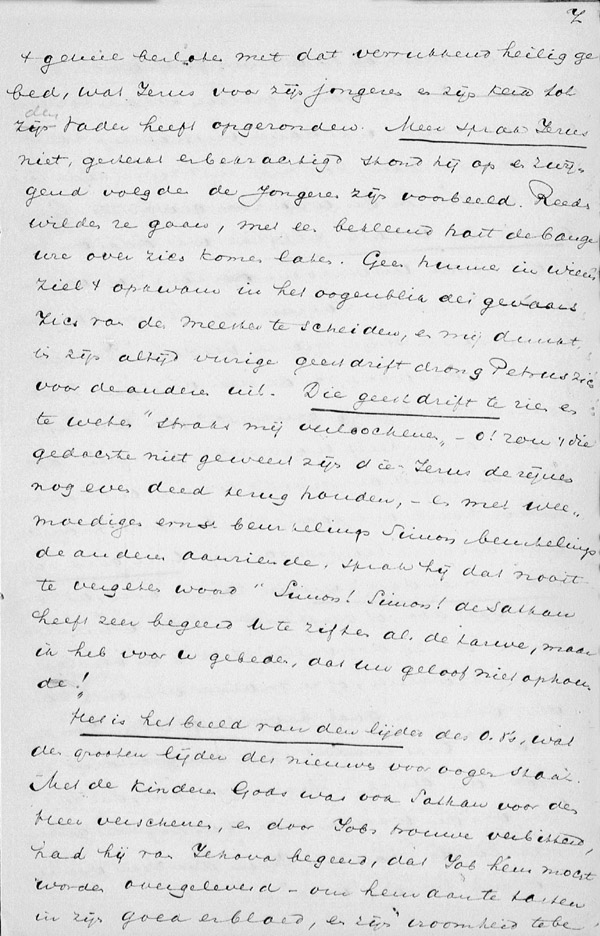 7
t geheel besloten met dat verrukkend heilig ge
bed, wat Jezus voor zijn jongeren en zijn kerk tot
den
zijn Vader heeft opgezonden. Meer sprak Jezus
niet, gesterkt en bekrachtigd stond hij op en zwij„
gend volgden de Jongeren zijn voorbeeld. Reeds
wilden ze gaan, met een beklemd hart de bange
ure over zich komen laten. Geen hunner in wiens
ziel 't opkwam in het oogenblik des gevaars
zich van den meester te scheiden, en mij dunkt,
in zijn altijd vurige geestdrift drong Petrus zich
voor de anderen uit. Die geestdrift te zien en
te weten "straks mij verloochenen„ – o! zou 't die
gedachte niet geweest zijn die Jezus de zijnen
nog even deed terug houden, – en met wee„
moedigen ernst beurtelings Simon beurtelings
de anderen aanziende, sprak hij dat nooit
te vergeten woord "Simon! Simon! de Sathan
heeft zeer begeerd u te ziften als de tarwe, maar
ik heb voor u gebeden, dat uw geloof niet ophou
de!„
Het is het beeld van den lijder des O. V's, wat
den grooten lijder des nieuwen voor oogen staat.
Met de kinderen Gods was ook Sathan voor den
Heer verschenen, en door Jobs trouwe verbitterd,
had hij van Jehova begeerd, dat Job hem mocht
worden overgeleverd – om hem aan te tasten
in zijn goed en bloed, en zijn vroomheid te be